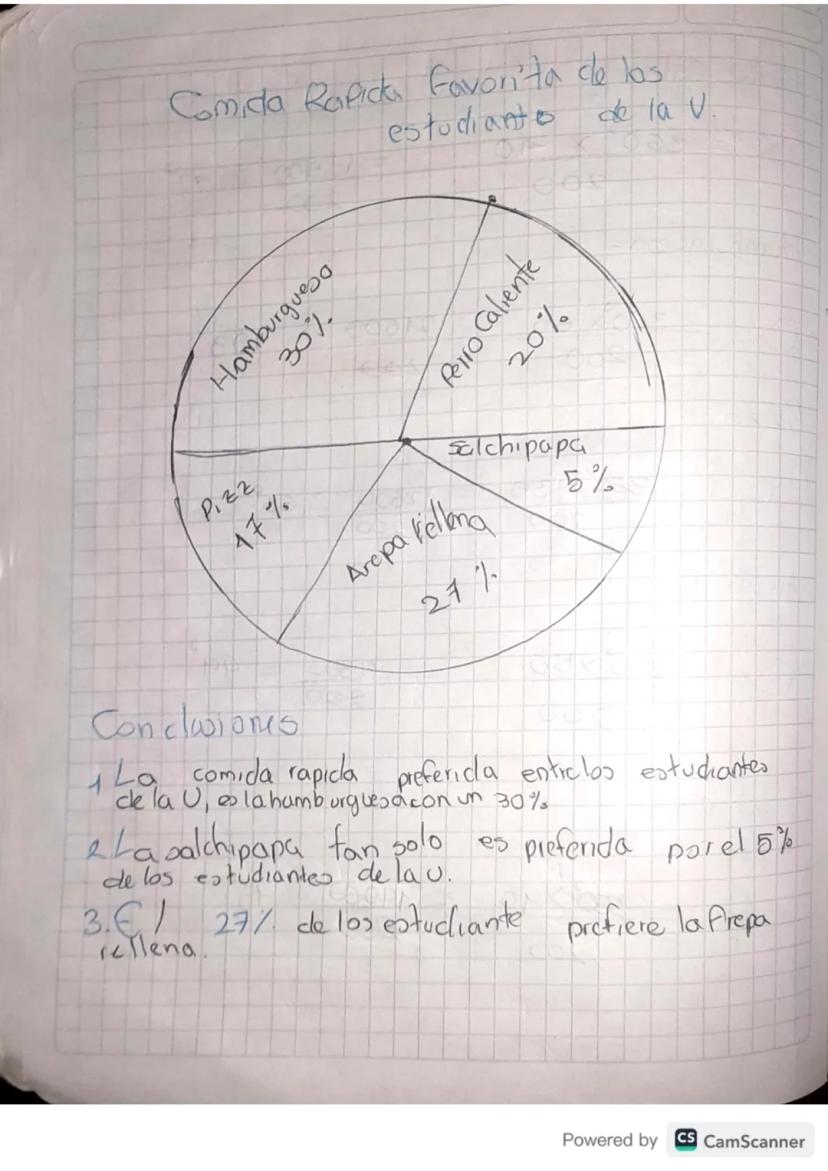 Comida Rapida Favorita de los
estudiantes de la U.
Hamburguesa
30%
Perro Caliente
20%
Salchipapa
5%
Pizz
17%
Arepa rellena
27%
Conclusiones
1 La comida rapida preferida entre los estudiantes
de la U, es la hamburguesa con un 30%
2 La salchipapa tan solo es preferida por el 5%
de los estudiantes de la U.
3. El 27% de los estudiante prefiere la Arepa
rellena.
Powered by CS CamScanner